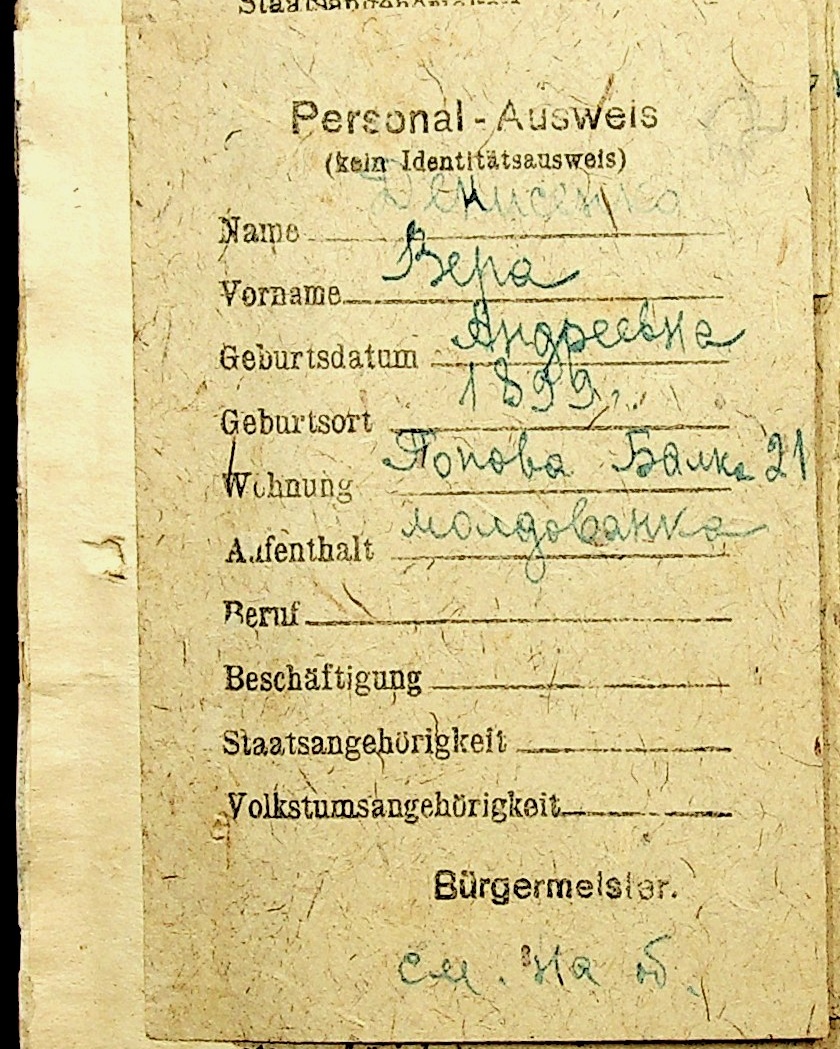 Staatsangehörigkeit
Personal-Ausweis
(kein Identitätsausweis)
Денисенко
Name
Вера
Vorname
Андреевна
Geburtsdatum
1899 г.
Geburtsort
Попова Балка 21
Wohnung
молдованка
Aufenthalt
Beruf
Beschäftigung
Staatsangehörigkeit
Volkstumsangehörigkeit
Bürgermeister.
см. на об.